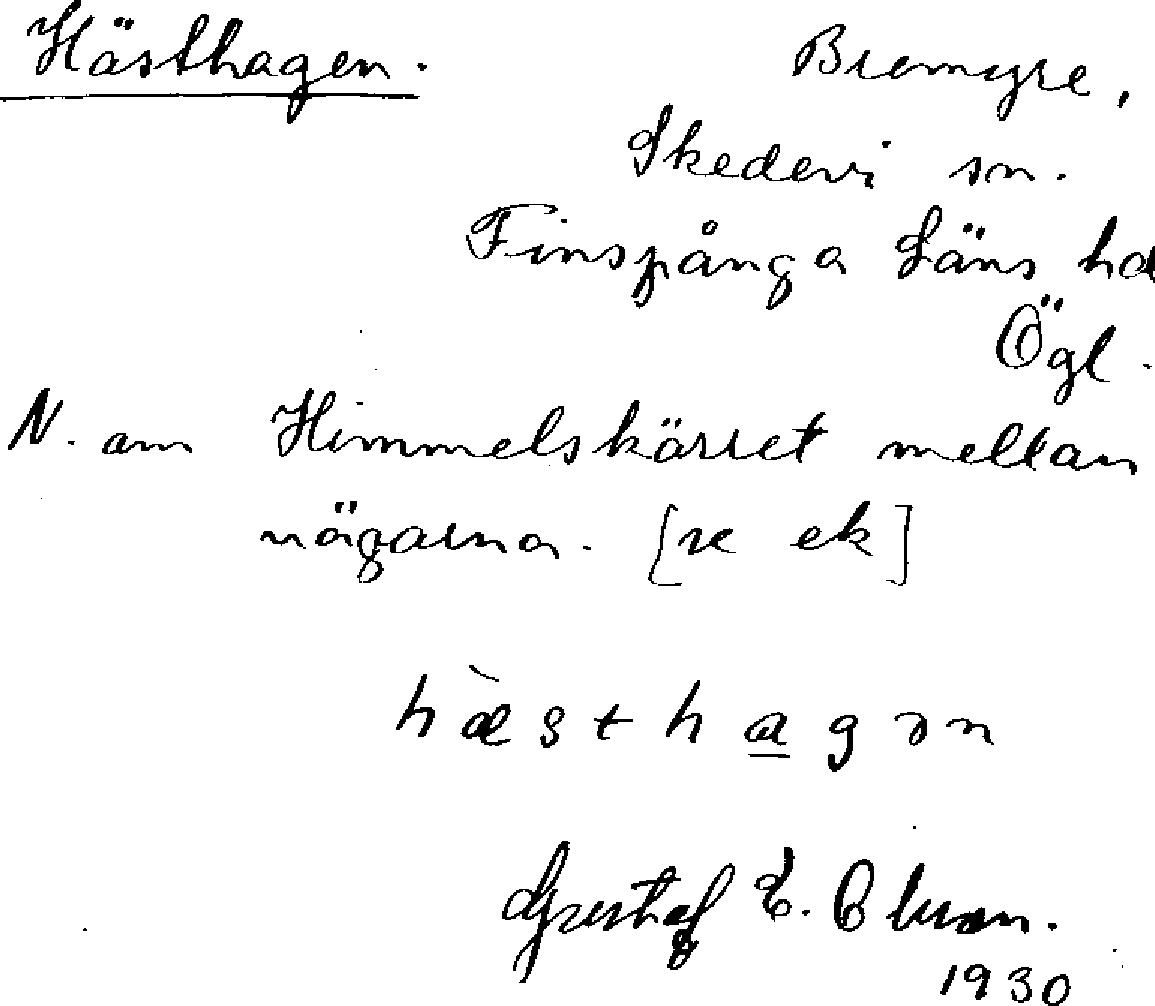 Hästhagen. Bremyre,
Skedevi sn.
Finspånga Läns hd
Ögl.
N. om Himmelskärret mellan
vägarna. [se ek]
hæ̀sthagən
Gustaf E.
1930